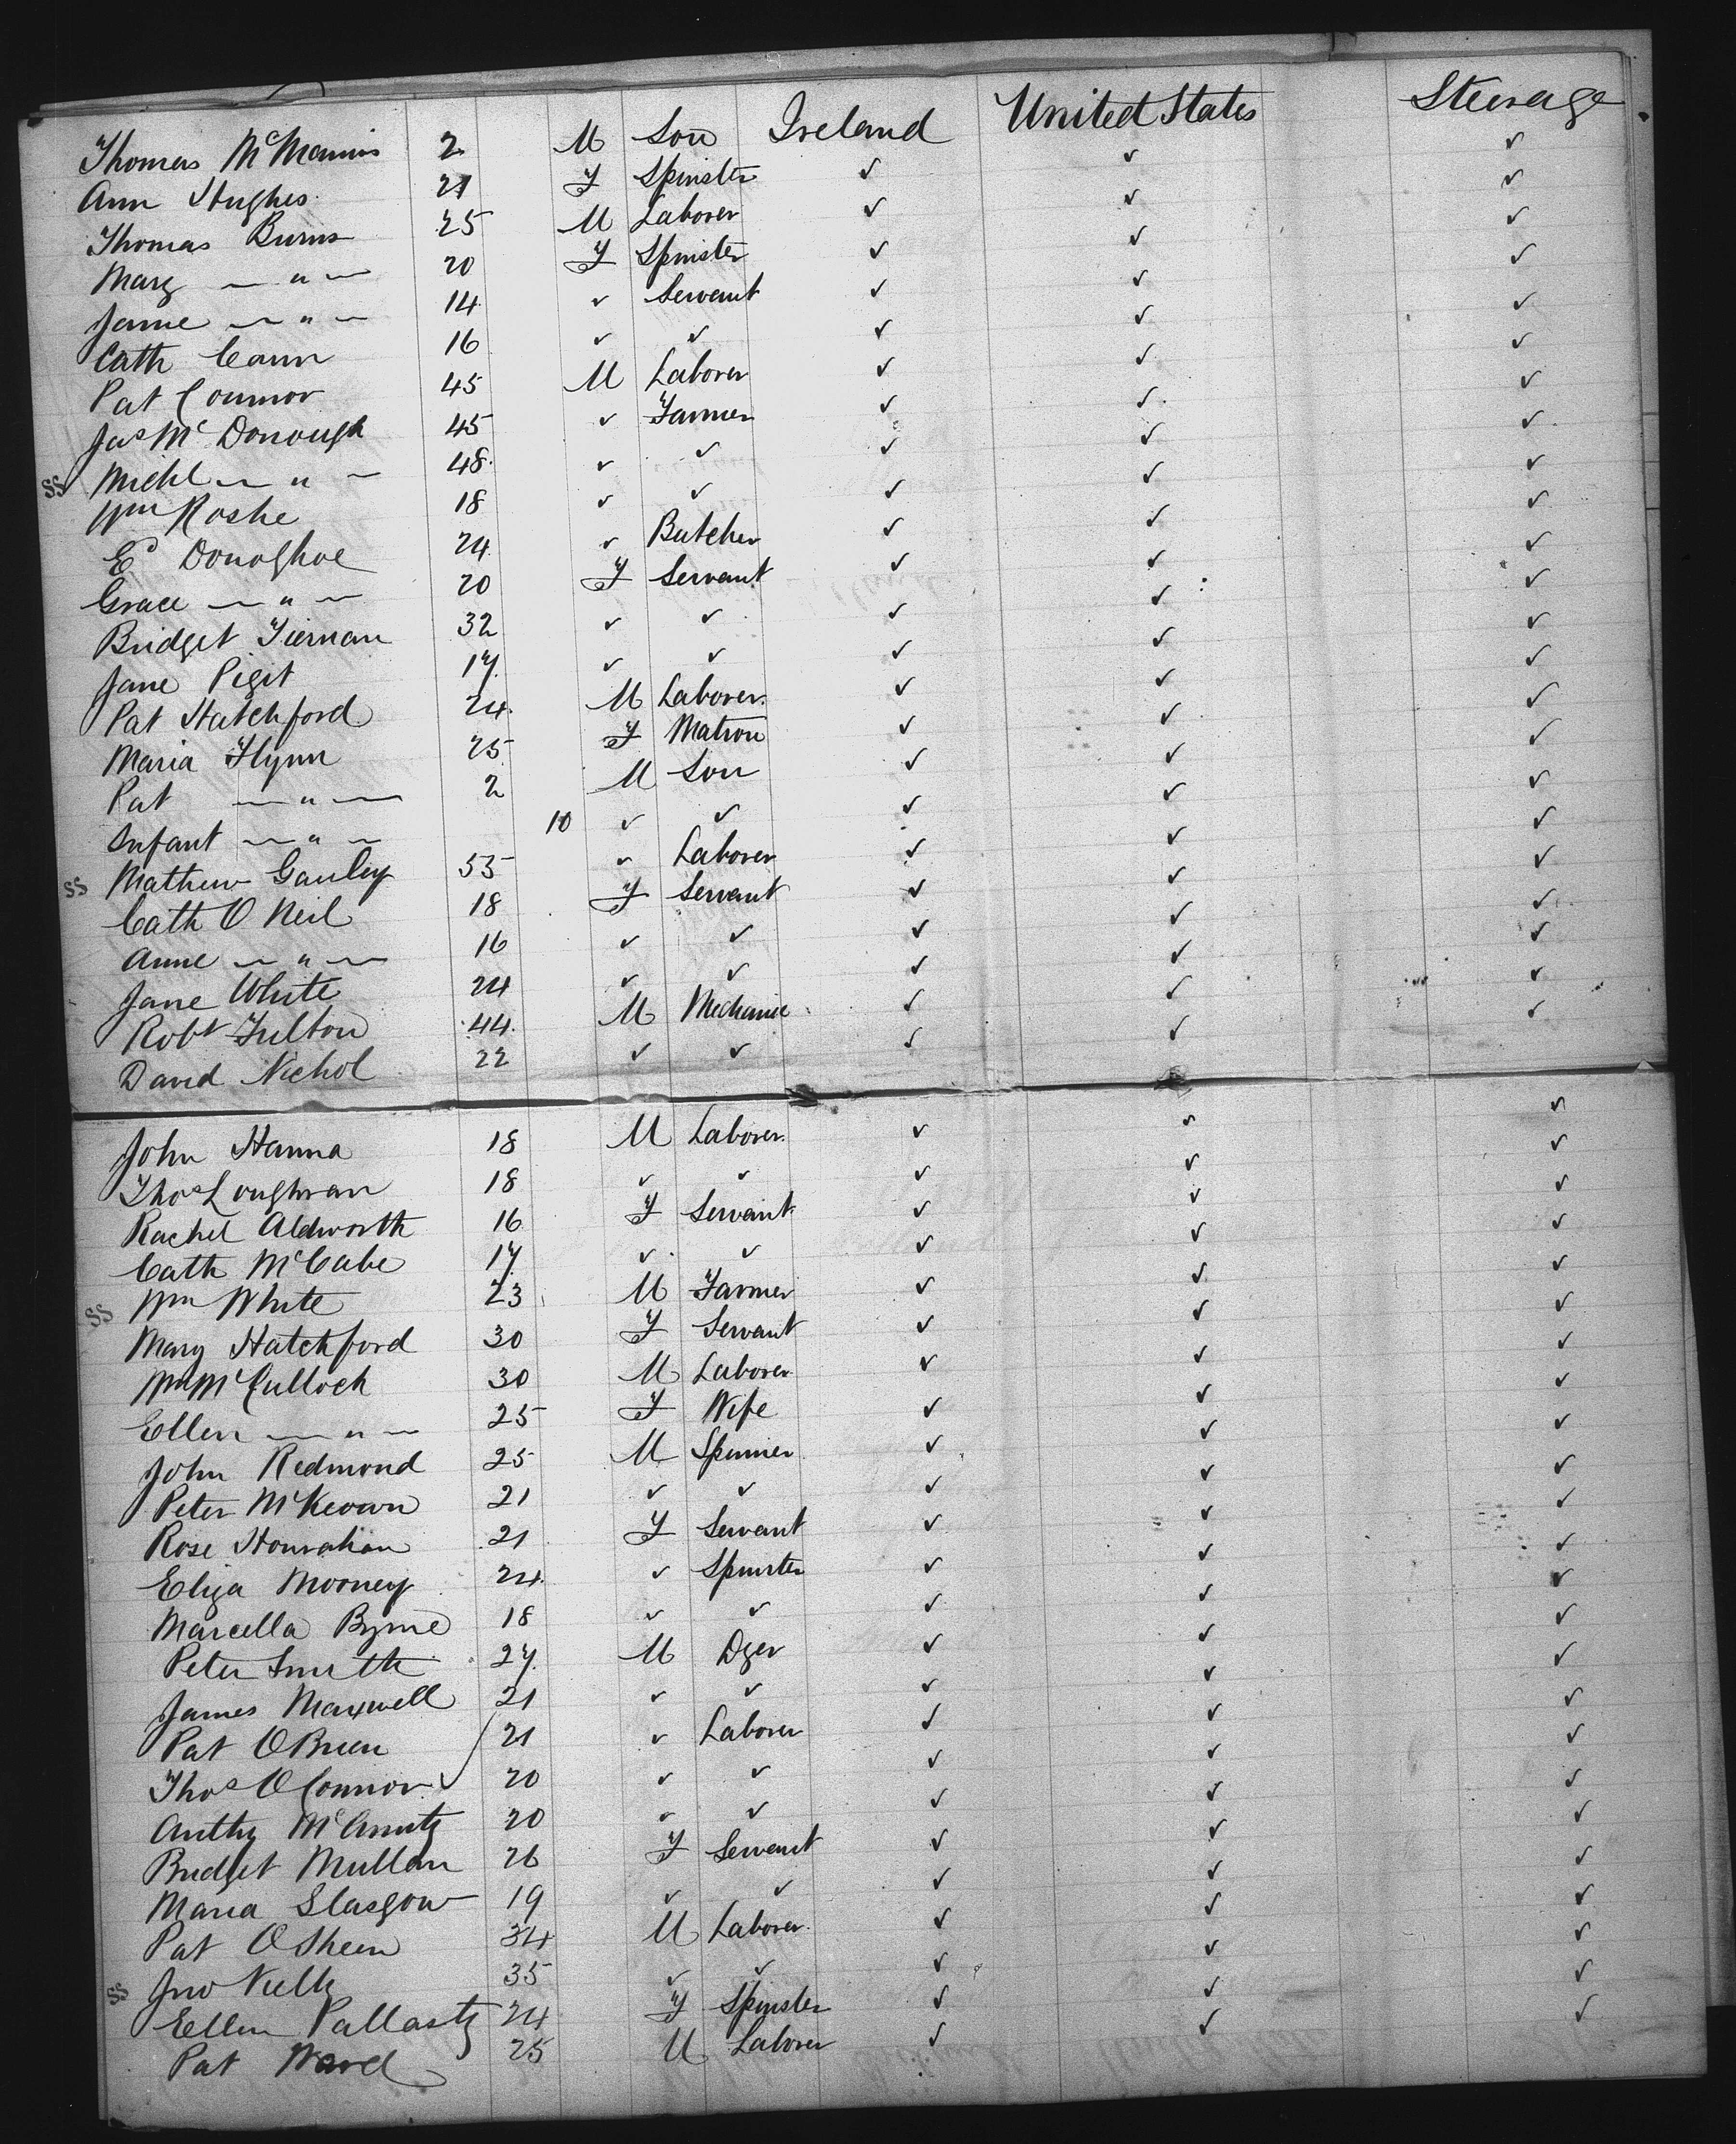 Thomas McMannis 2 M Son Ireland United States Steerage
Ann Hughes 21 F Spinster ✓ ✓ ✓
Thomas Burns 25 M Laborer ✓ ✓ ✓
Marg — " — 20 F Spinster ✓ ✓ ✓
Jane — " — 14 ✓ Servant ✓ ✓ ✓
Cath Cann 16 ✓ ✓ ✓ ✓ ✓
Pat Connor 45 M Laborer ✓ ✓ ✓
Jas McDonough 45 ✓ Farmer ✓ ✓ ✓
SS Michl — " — 48 ✓ ✓ ✓ ✓ ✓
Wm Roshe 18 ✓ ✓ ✓ ✓ ✓
Ed Donoghoe 24 ✓ Butcher ✓ ✓ ✓
Grace — " — 20 F Servant ✓ ✓ ✓
Bridget Tiernan 32 ✓ ✓ ✓ ✓ ✓
Jane Pigit 17 ✓ ✓ ✓ ✓ ✓
Pat Hatchford 24 M Laborer ✓ ✓ ✓
Maria Flynn 25 F Matron ✓ ✓ ✓
Pat — " — 2 M Son ✓ ✓ ✓
Infant — " — 10 ✓ ✓ ✓ ✓ ✓
SS Mathew Gauley 55 ✓ Laborer ✓ ✓ ✓
Cath O Neil 18 F Servant ✓ ✓ ✓
Anne — " — 16 ✓ ✓ ✓ ✓ ✓
Jane White 24 ✓ ✓ ✓ ✓ ✓
Robt Fulton 44 M Mechanic ✓ ✓ ✓
David Nichol 22 ✓ ✓ ✓ ✓ ✓
John Hanna 18 M Laborer ✓ ✓ ✓
Thos Loughran 18 ✓ ✓ ✓ ✓ ✓
Rachel Aldworth 16 F Servant ✓ ✓ ✓
Cath McCabe 17 ✓ ✓ ✓ ✓ ✓
SS Wm White 23 M Farmer ✓ ✓ ✓
Mary Hatchford 30 F Servant ✓ ✓ ✓
Wm McCulloch 30 M Laborer ✓ ✓ ✓
Ellen — " — 25 F Wife ✓ ✓ ✓
John Redmond 25 M Spinner ✓ ✓ ✓
Peter McKeown 21 ✓ ✓ ✓ ✓ ✓
Rose Hourahan 21 F Servant ✓ ✓ ✓
Eliza Mooney 24 ✓ Spinster ✓ ✓ ✓
Marcella Byrne 18 ✓ ✓ ✓ ✓ ✓
Peter Smith 27 M Dyer ✓ ✓ ✓
James Maxwell 21 ✓ ✓ ✓ ✓ ✓
Pat OBrien 21 ✓ Laborer ✓ ✓ ✓
Thos OConnor 20 ✓ ✓ ✓ ✓ ✓
Anthy 20 ✓ ✓ ✓ ✓ ✓
Bridget Mullan 26 F Servant ✓ ✓ ✓
Maria Glasgow 19 ✓ ✓ ✓ ✓ ✓
Pat OSheen 34 M Laborer ✓ ✓ ✓
SS Jno Kelly 35 ✓ ✓ ✓ ✓ ✓
Ellen Pallasty 24 F Spinster ✓ ✓ ✓
Pat Ward 25 M Laborer ✓ ✓ ✓